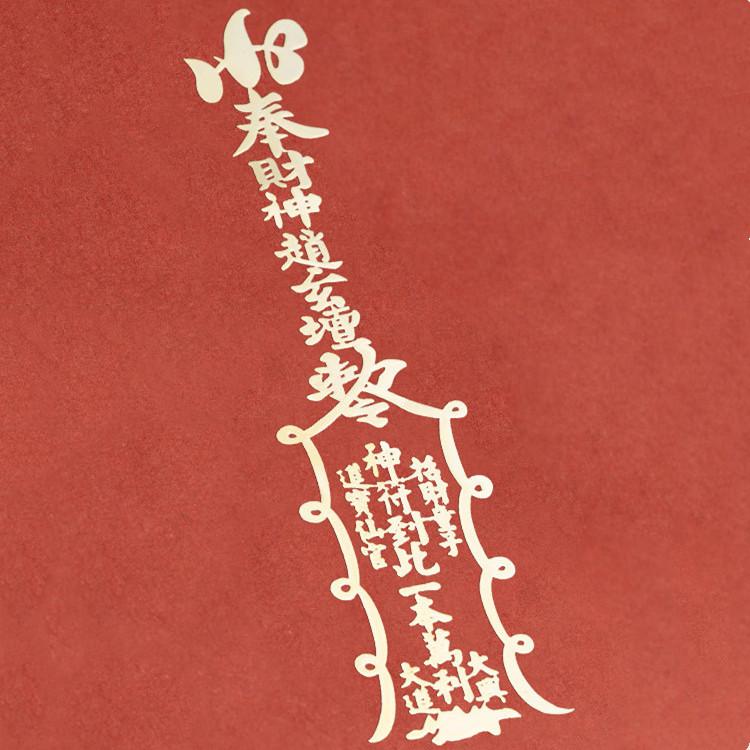 奉財神趙玄壇勅令
招財童子
神符到此一本萬利
進寶仙官
大興
大進